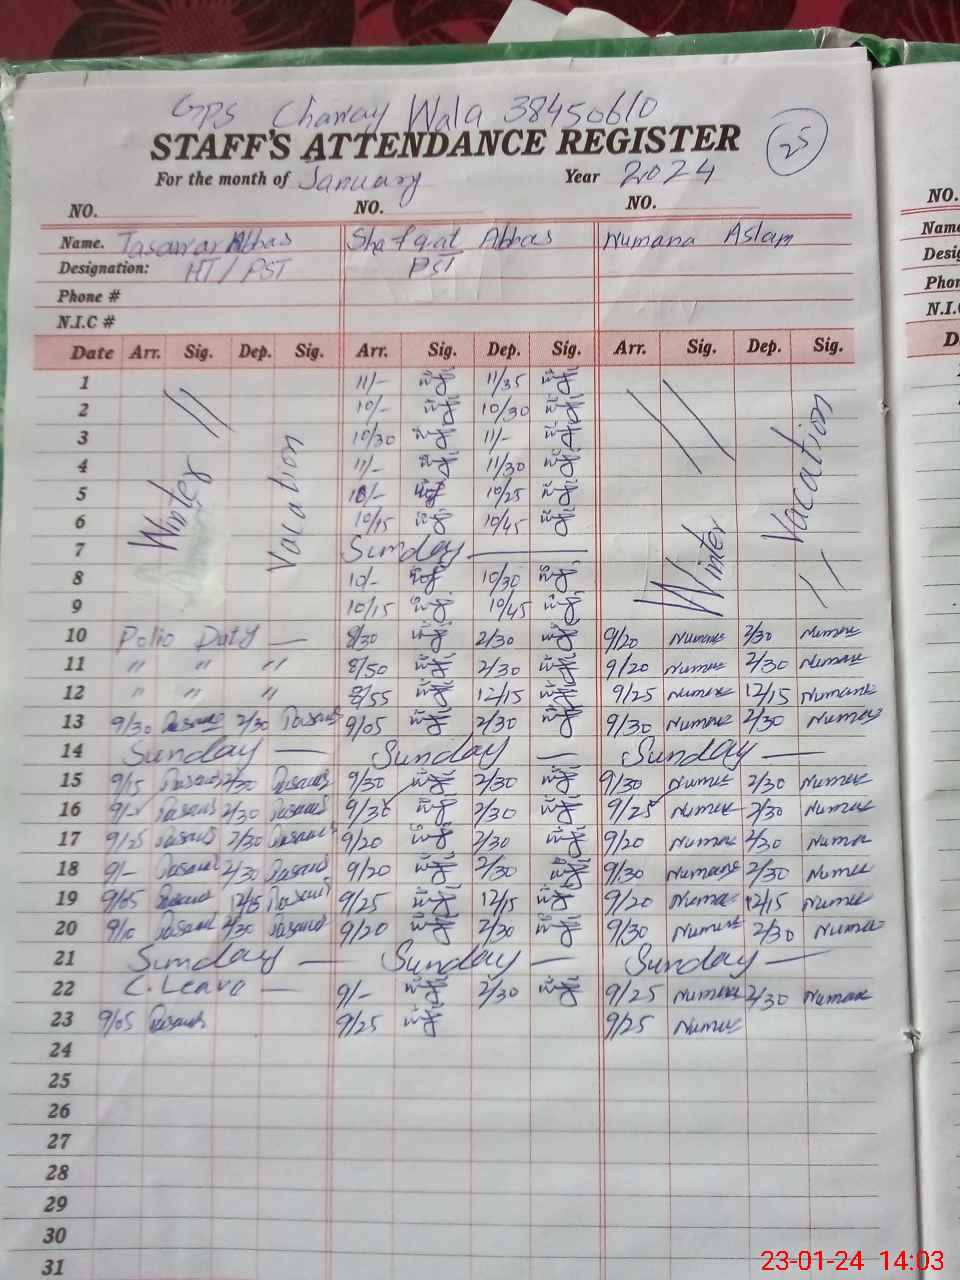 GPS Charray Wala 38450610
STAFF'S ATTENDANCE REGISTER 25
For the month of January Year 2024
NO. NO. NO. NO.
Name. Tasawar Abbas Shafqat Abbas Numana Aslam Name
Designation: HT/PST PST Desig
Phone # Phon
N.I.C # N.I.C
Date Arr. Sig. Dep. Sig. Arr. Sig. Dep. Sig. Arr. Sig. Dep. Sig. D
Winter Vacation
Winter Vacation
1 11/- 11/35
2 10/- 10/30
3 10/30 11/-
4 11/- 11/30
5 10/- 10/25
6 10/15 10/45
7 Sunday
8 10/- 10/30
9 10/15 10/45
10 Polio Duty — 8/30 2/30 9/20 Numana 2/30 Numana
11 " " " 8/50 2/30 9/20 Numana 2/30 Numana
12 " " " 8/55 12/15 9/25 Numana 12/15 Numana
13 9/30 Tasawar 2/30 Tasawar 9/05 2/30 9/30 Numana 2/30 Numana
14 Sunday — Sunday — Sunday —
15 9/15 Tasawar 2/30 Tasawar 9/30 2/30 9/30 Numana 2/30 Numana
16 Tasawar 2/30 Tasawar 9/35 2/30 9/25 Numana 2/30 Numana
17 9/25 Tasawar 2/30 Tasawar 9/20 2/30 9/20 Numana 2/30 Numana
18 9/- Tasawar 2/30 Tasawar 9/20 2/30 9/30 Numana 2/30 Numana
19 9/05 Tasawar 12/15 Tasawar 9/25 12/15 9/20 Numana 12/15 Numana
20 9/10 Tasawar 2/30 Tasawar 9/20 2/30 9/30 Numana 2/30 Numana
21 Sunday — Sunday — Sunday —
22 C. Leave — 9/- 2/30 9/25 Numana 2/30 Numana
23 9/05 Tasawar 9/25 9/25 Numana
24
25
26
27
28
29
30
31
23-01-24 14:03